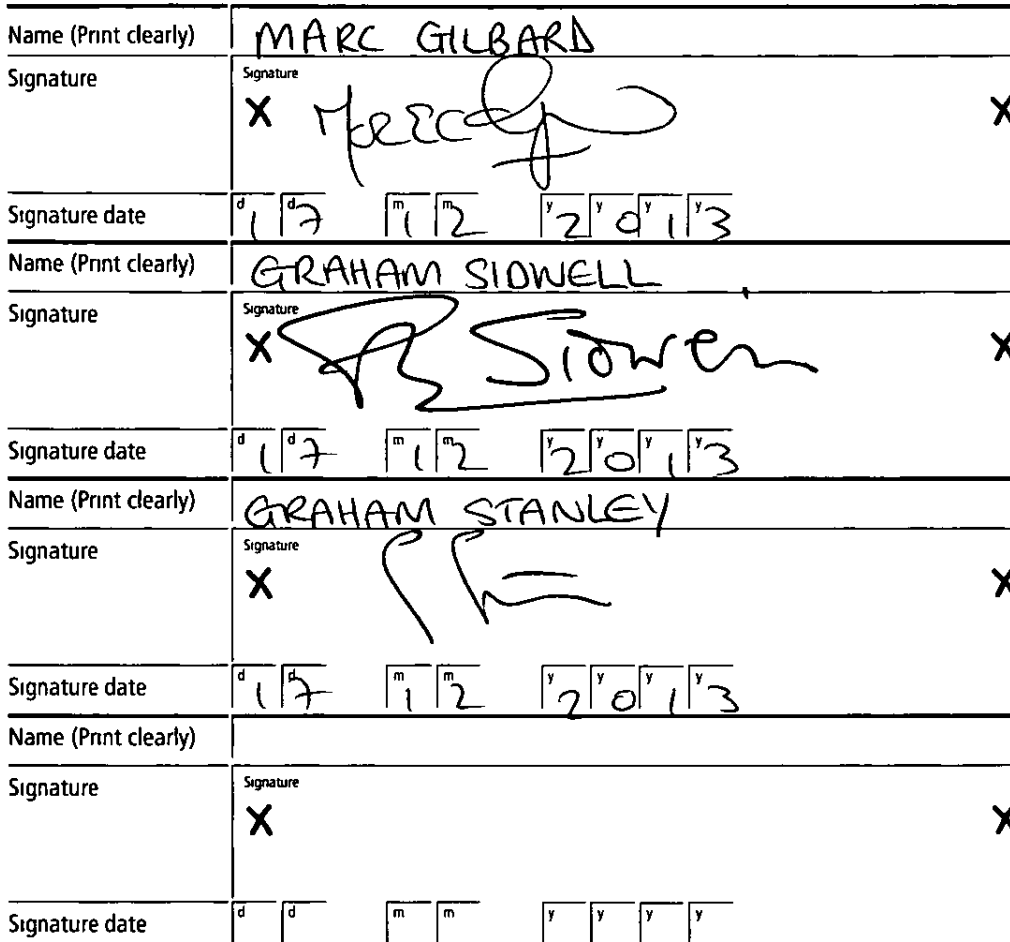 Name (Print clearly) MARC GILBARD
Signature Signature
X X
Signature date d 1 d 7 m 1 m 2 y 2 y 0 y 1 y 3
Name (Print clearly) GRAHAM SIDWELL
Signature Signature
X Sidwell X
Signature date d 1 d 7 m 1 m 2 y 2 y 0 y 1 y 3
Name (Print clearly) GRAHAM STANLEY
Signature Signature
X X
Signature date d 1 d 7 m 1 m 2 y 2 y 0 y 1 y 3
Name (Print clearly)
Signature Signature
X X
Signature date d d m m y y y y